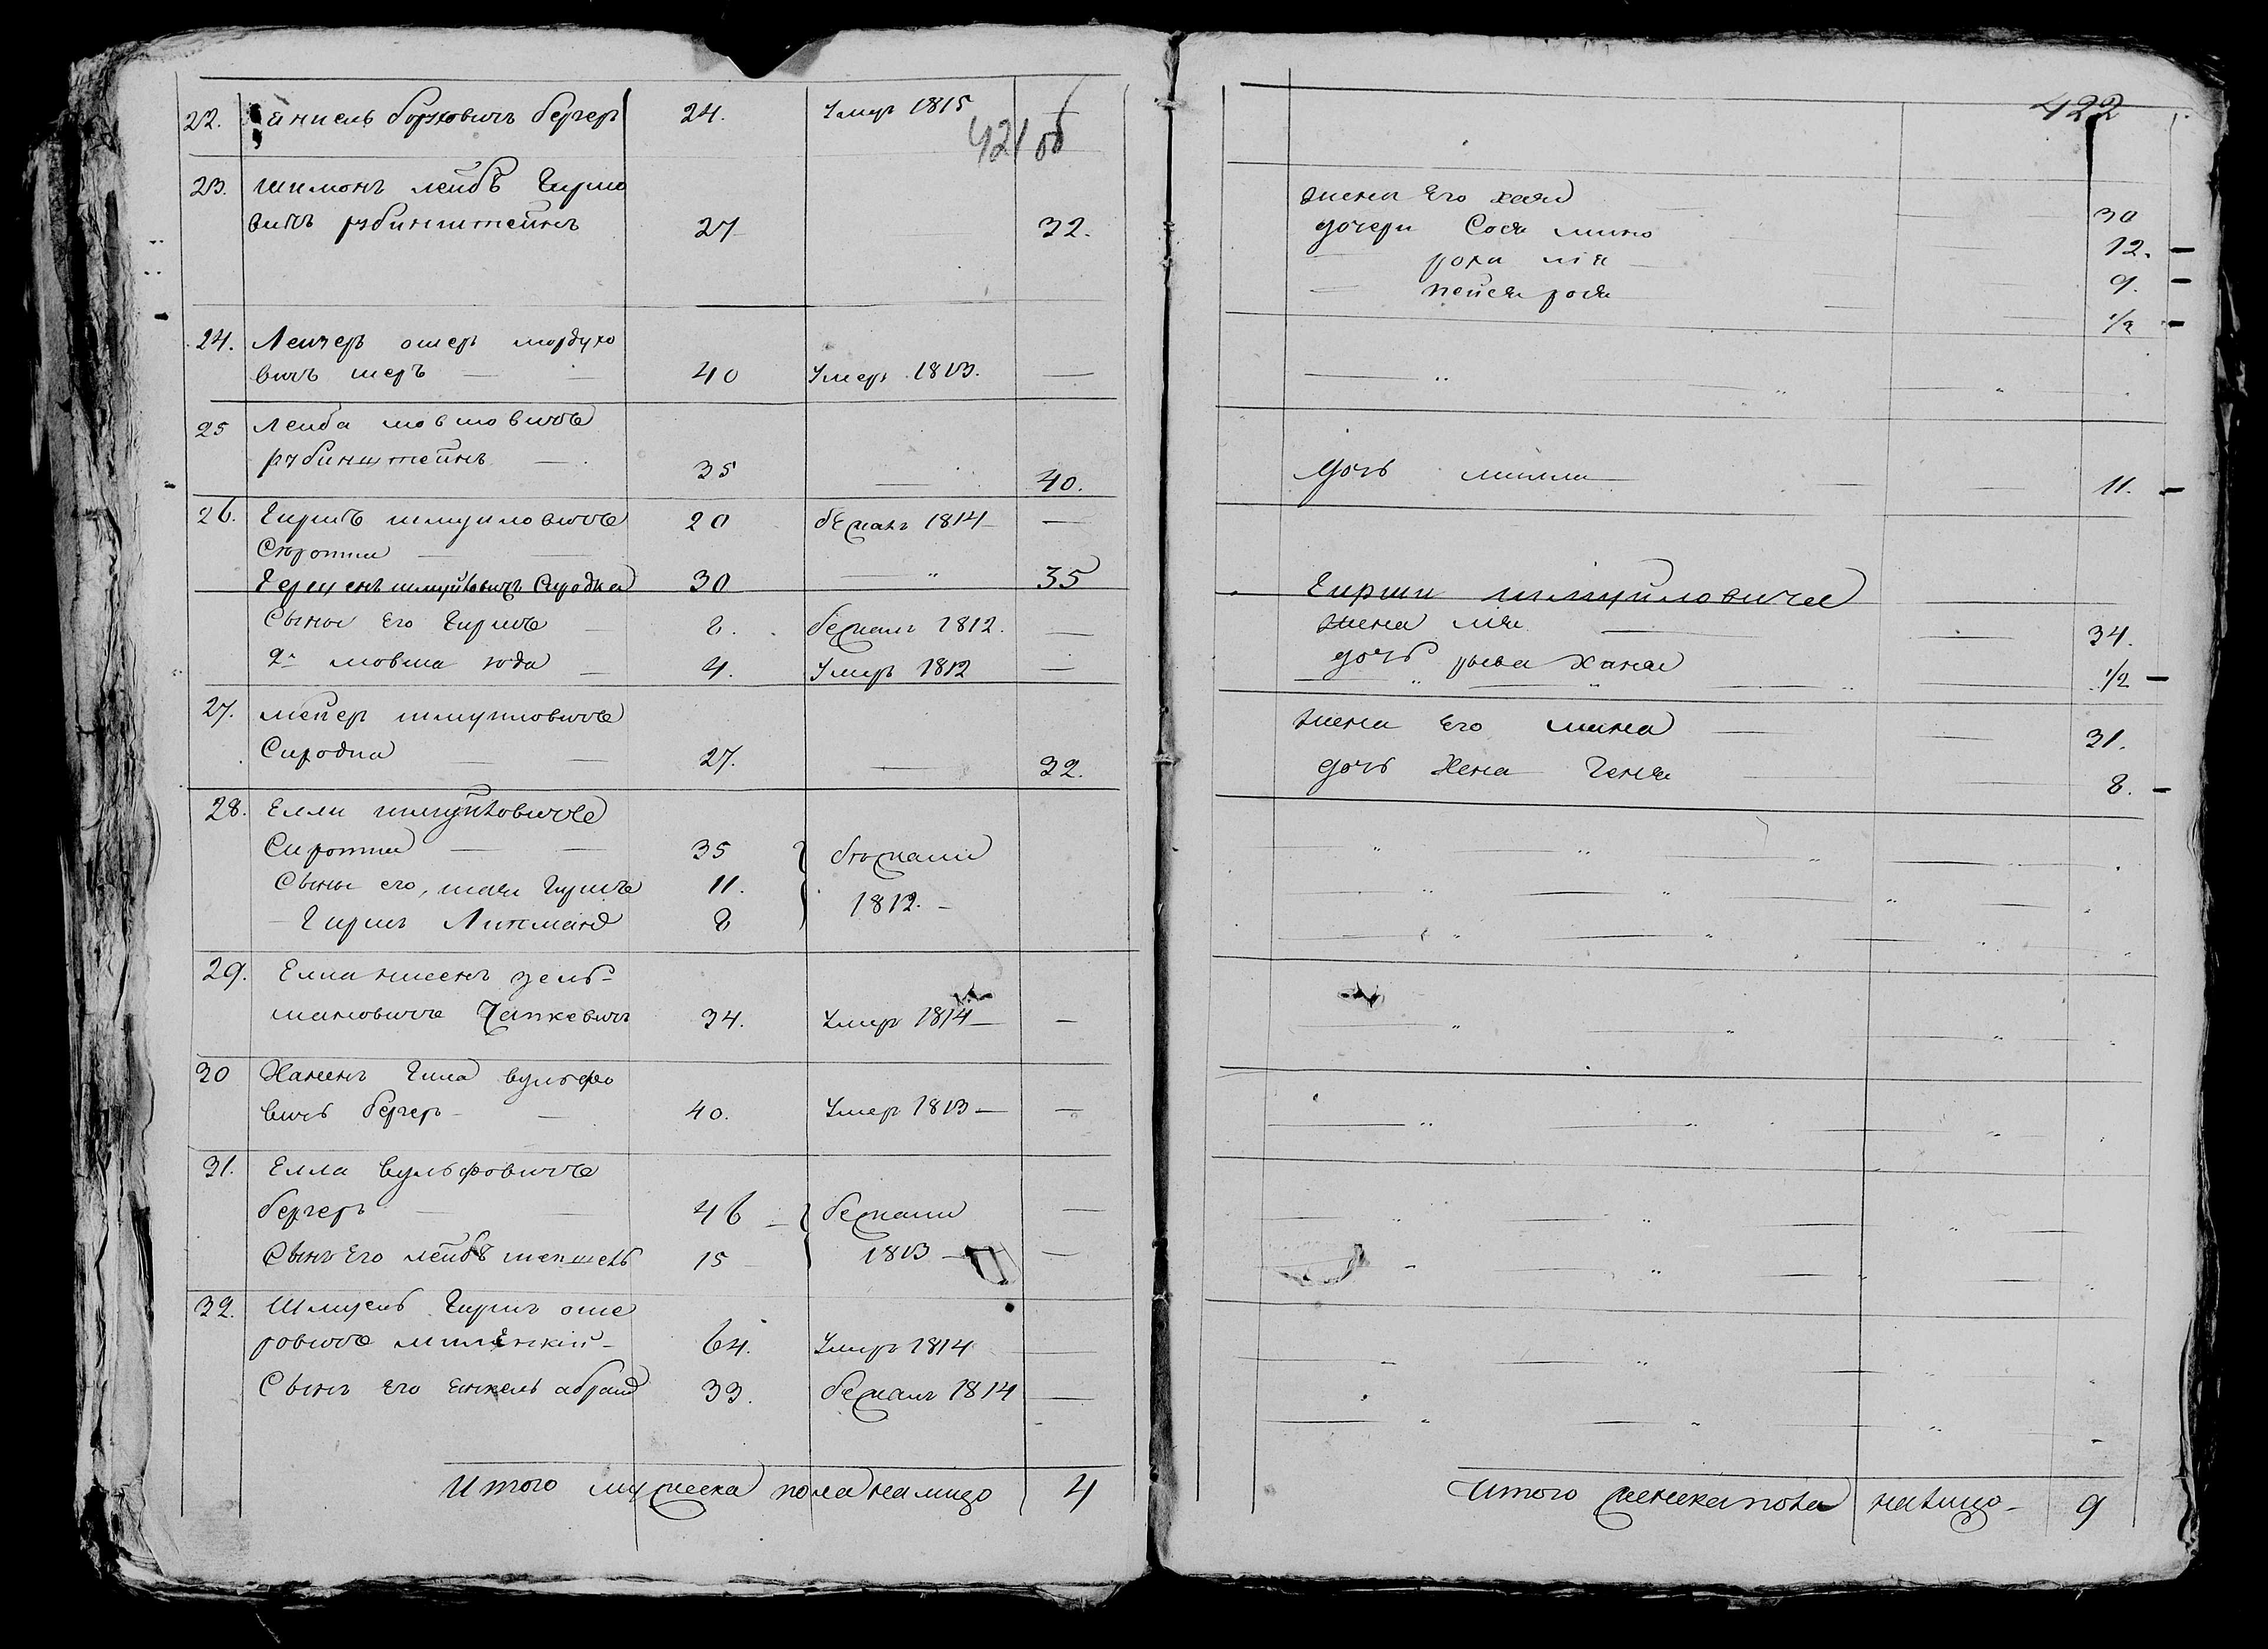 421 об
22. борухович бергер 24. Умер 1815 —
23. Шимонъ лейбъ Гиршо
вичъ рубинштейнъ 27 — 32.
24. Лейзеръ ошеръ мордухо
вичъ шеръ — 40 Умеръ 1813. —
25 Лейба мовшовичъ
рубинштейнъ — 35 — 40.
26. Гиршъ шмуиловичъ 20 бежалъ 1814 —
Сиротка —
шмуйловичъ Сиродка 30 — 35
Сыны Его Гиршъ — 8. бежалъ 1812. —
2й мовша юда — 4. Умеръ 1812 —
27. мейеръ шмуиловичъ
Сиродка — 27. — 32.
28. Елли шмуйловичъ
Сиротка — 35 бежали
Сыны его, Гиршъ 11. 1812. —
— Гиршъ Липманъ 8
29. зель-
мановичъ Чапкевичъ 34. Умеръ 1814 — —
30 Гилла вульфо
вичъ бергеръ — 40. Умеръ 1813 — —
31. Елла вульфовичъ
бергеръ — 46 — бежали —
Сынъ Его лейбъ 15 — 1813 — —
32. Шмуель Гиршъ оше
ровичъ 64. Умеръ 1814 —
Сынъ Его янкель абрамъ 33. бежалъ 1814 —
Итого мужеска пола налицо 4
422
жена Его хая 30
дочери Сося мина 12.
— роха лія — 9.
— пейся рося 1/2
дочь 11.
Гирши шмуиловича
жена лія — 34.
дочь рыва хана 1/2
жена Его мина — 31.
дочь Хена Геня 8.
Итого женска пола налицо — 9